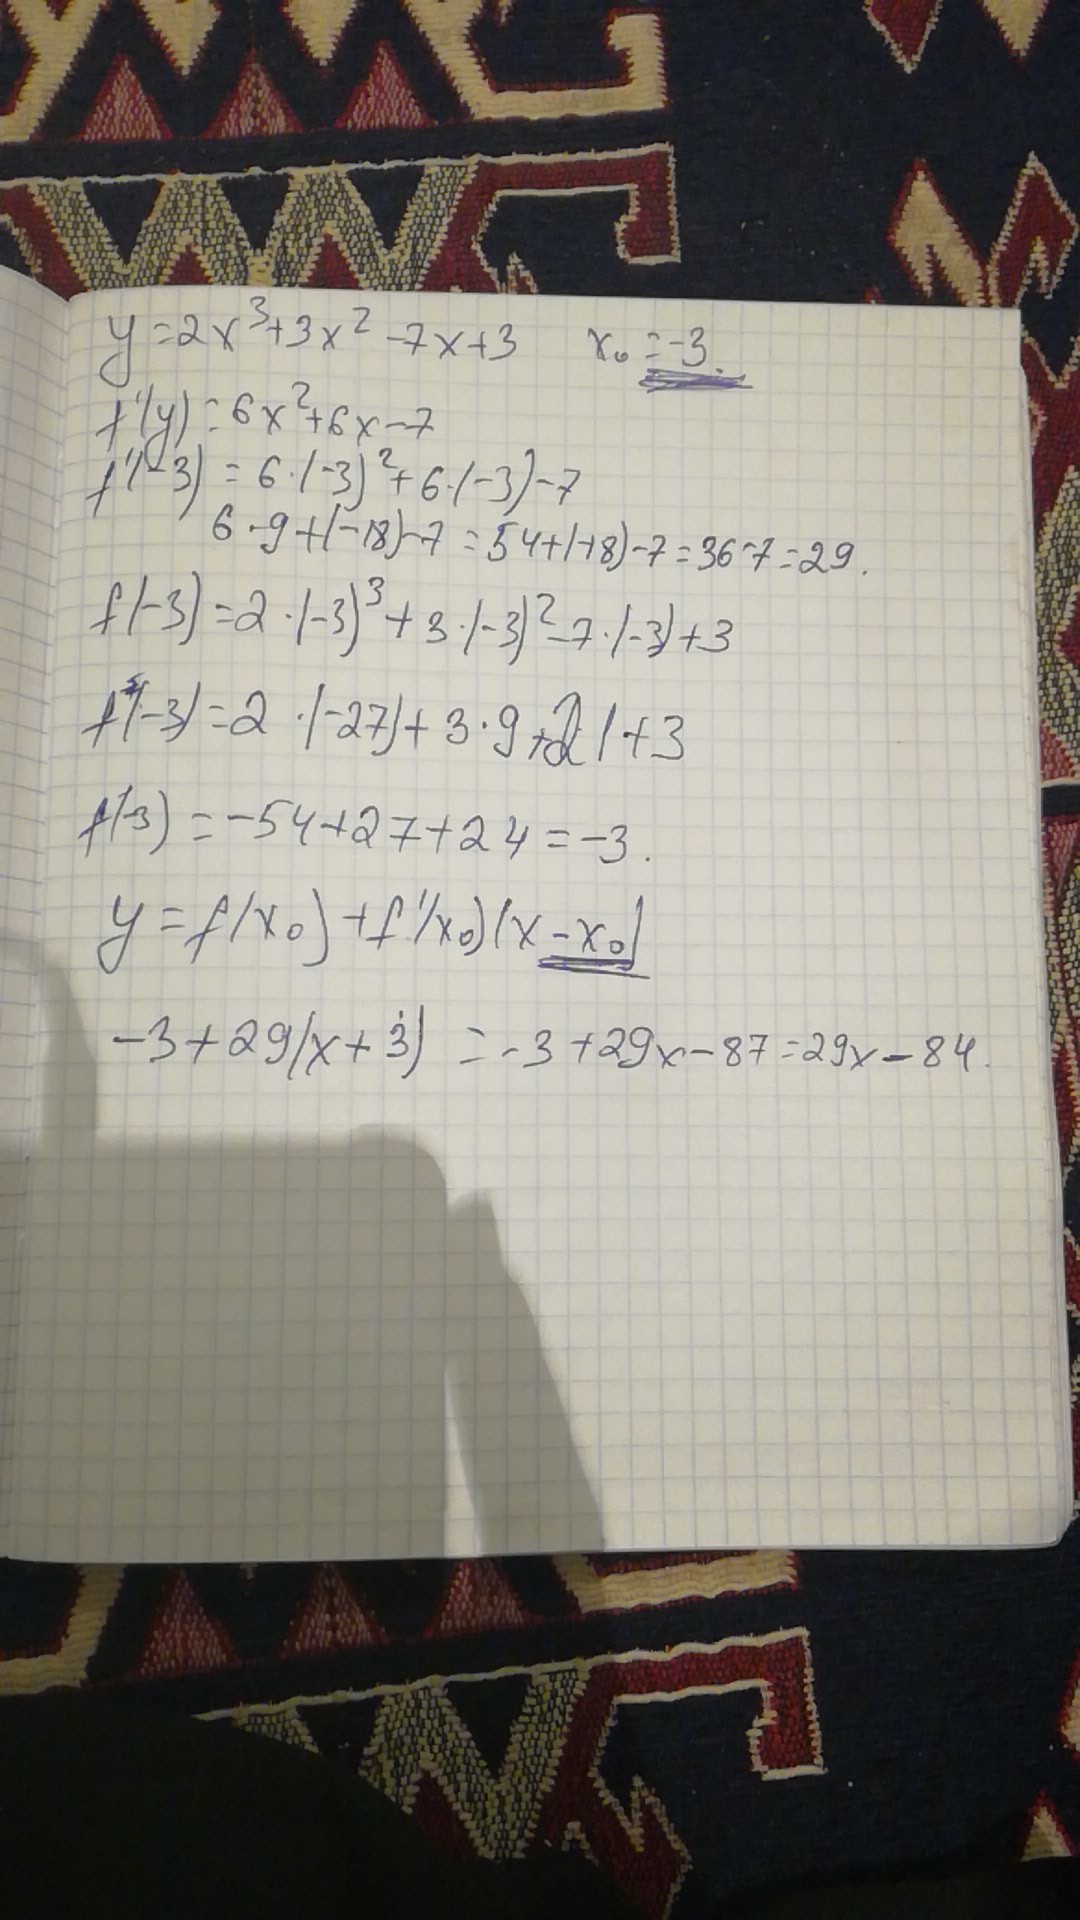 y=2x³+3x²-7x+3 x₀=-3.
f'(y)=6x²+6x-7
f'(-3)=6·(-3)²+6·(-3)-7
6·9+(-18)-7=54+(-18)-7=36-7=29.
f(-3)=2·(-3)³+3·(-3)²-7·(-3)+3
f(-3)=2·(-27)+3·9+21+3
f(-3)=-54+27+24=-3.
y=f(x₀)+f'(x₀)(x-x₀)
-3+29(x+3)=-3+29x-87=29x-84.